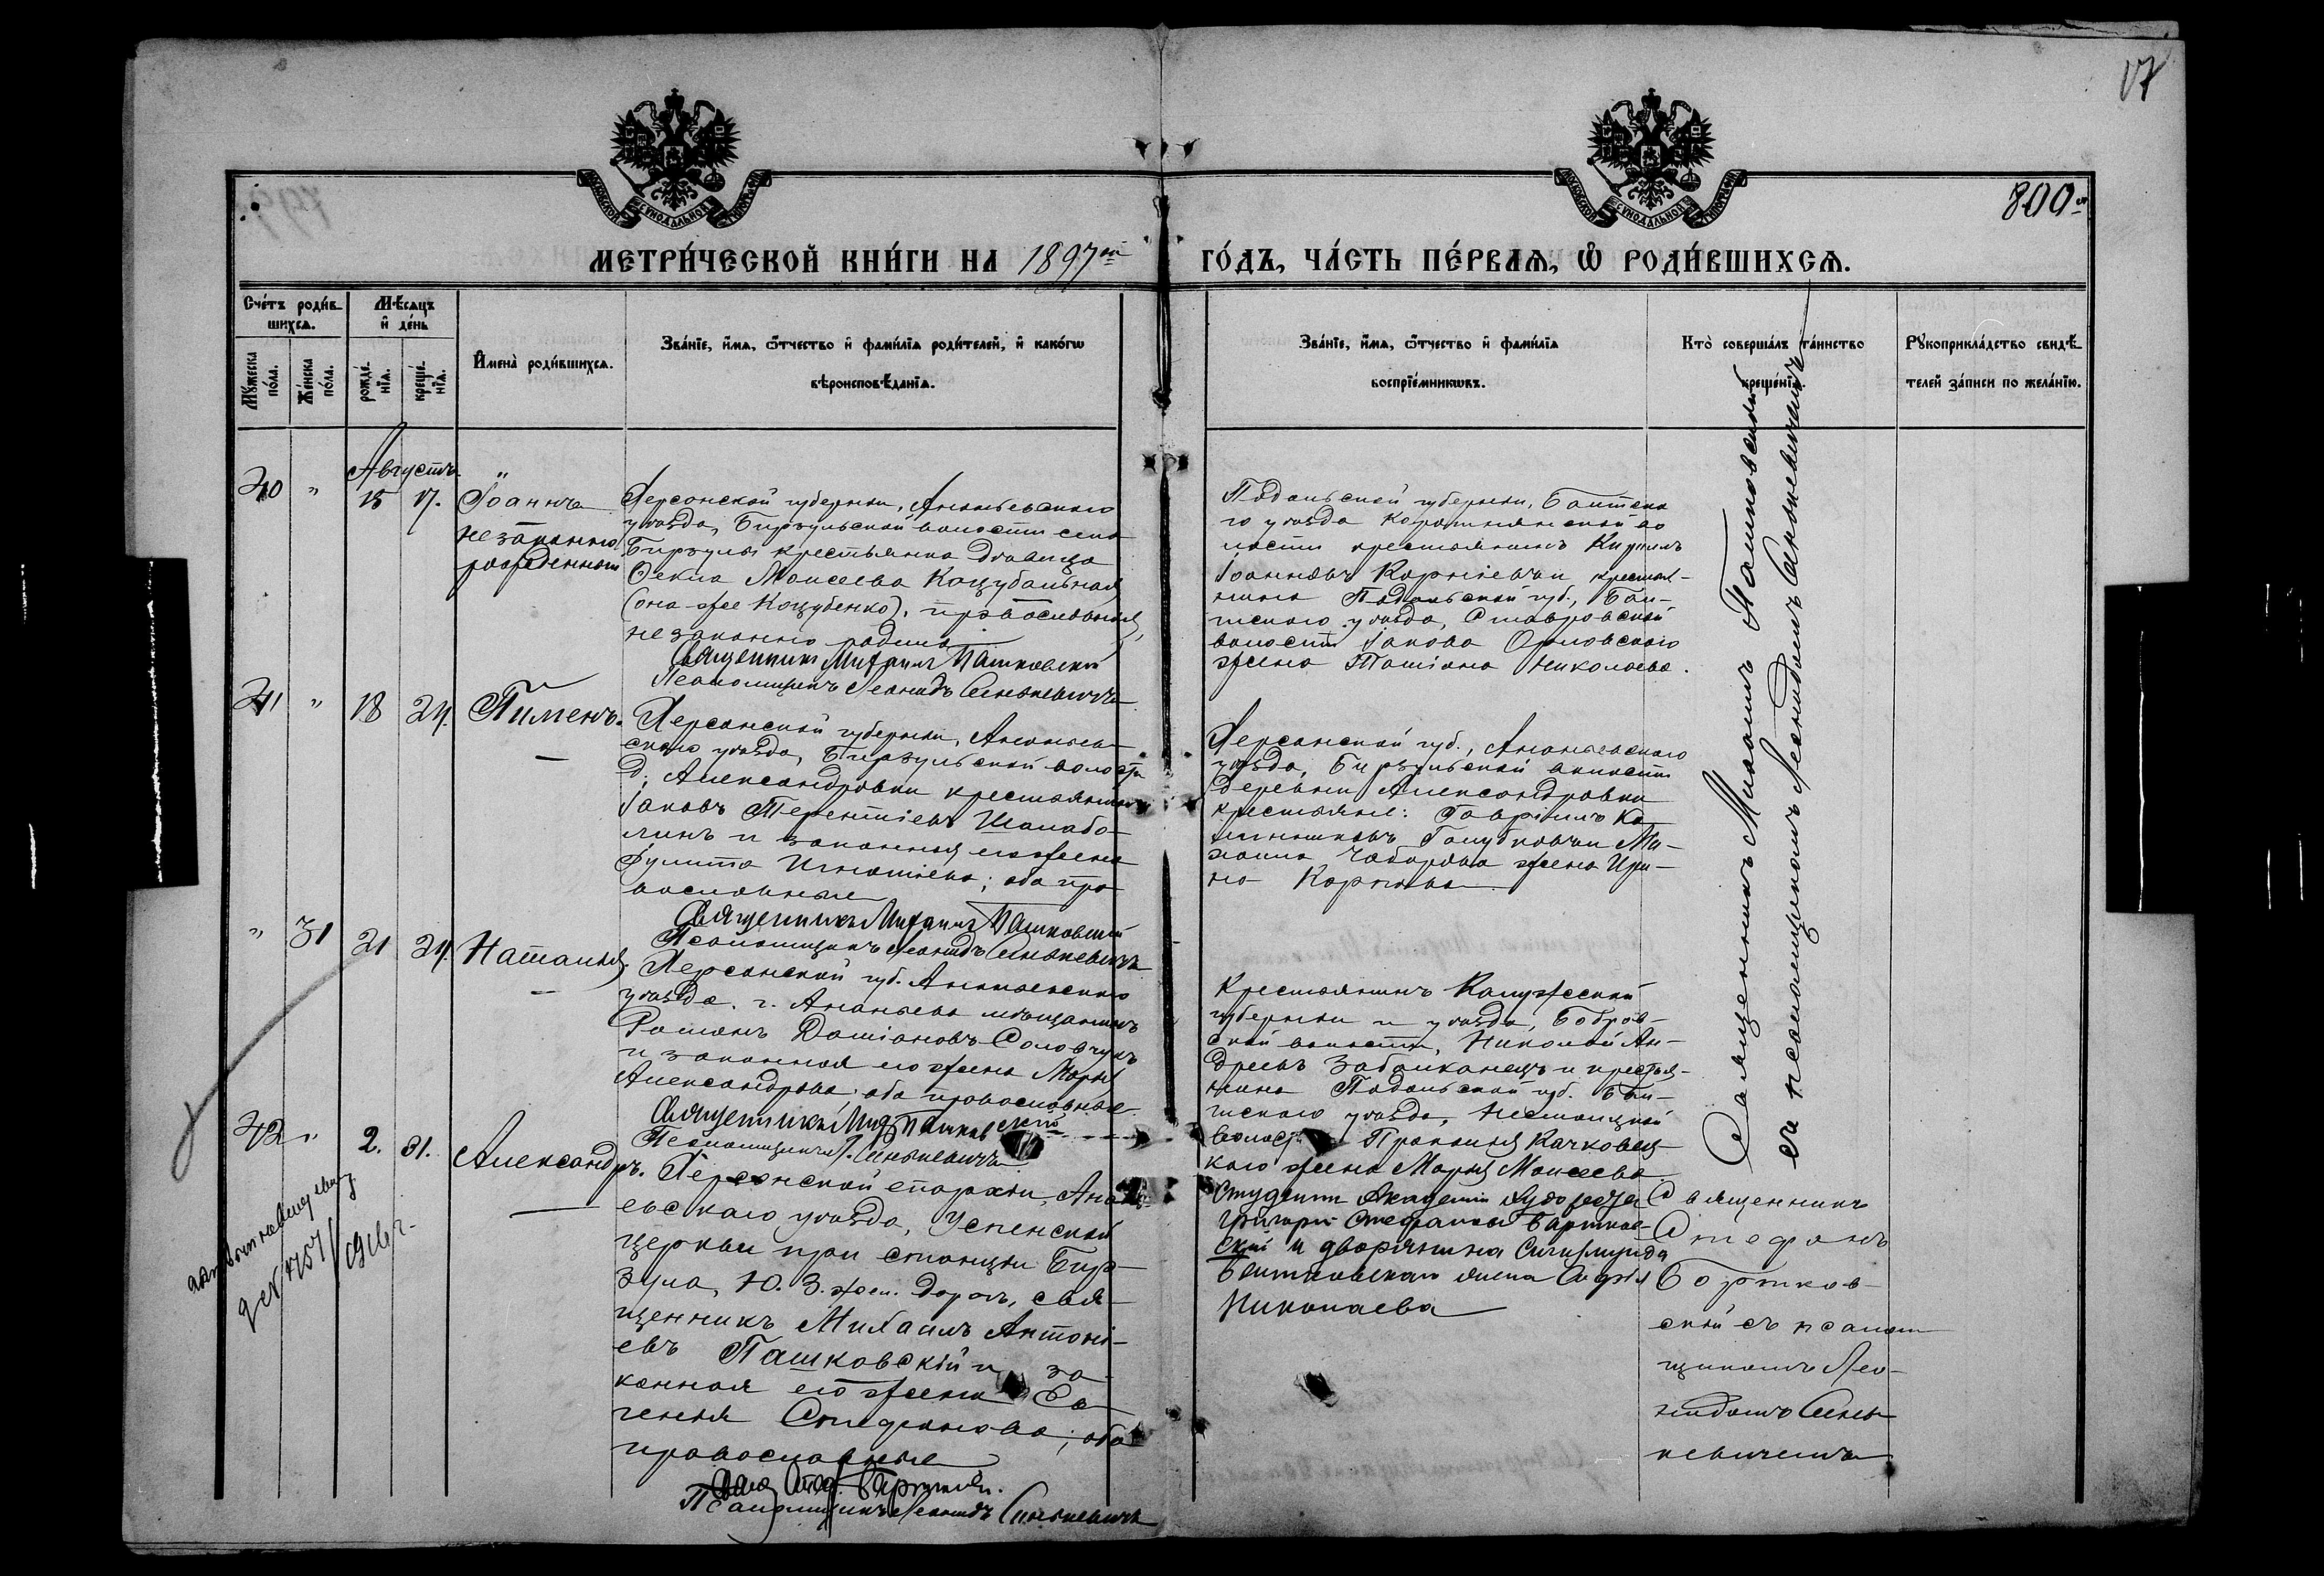 17
800
МЕТРИ́ЧЕСКОЙ КНИ́ГИ НА 1897 ГО́ДЪ, ЧА́СТЬ ПЕ́РВАѦ, Ѡ҆ РОДИ́ВШИХСѦ.
Сче́тъ роди́в-
шихсѧ.
Мѣ́сяцъ
и҆ де́нь
Мꙋ́жеска
по́ла.
Же́нска
по́ла.
рожде́-
нїѧ.
креще́-
нїѧ.
И҆мена̀ роди́вшихсѧ.
Зва́нїе, и҆́мѧ, ѻ҆́тчество и҆ фами́лїѧ роди́телей, и҆ како́гѡ
вѣроисповѣ́данїѧ.
Зва́нїе, и҆́мѧ, ѻ҆́тчество и҆ фами́лїѧ
воспрїе́мникѡвъ.
Кто̀ соверша́лъ та́инство
креще́нїѧ.
Рꙋкоприкла́дство свидѣ́-
телей за́писи по жела́нїю.
Августъ
40 " 15 17.
Іоаннъ
незаконно
рожденный
Херсонской губерніи, Ананьевскаго
уѣзда, Бирзульской волости села
Бирзулы крестьянка дѣвица
Ѳекла Моисеева Коцубальная
(она-же Коцубенко), православная,
незаконно родила
Священникъ Михаилъ Пашковскій
Псаломщикъ Леонидъ Синькевичъ
Подольской губерніи, Балтска-
го уѣзда во-
лости крестьянинъ Кириллъ
Іоанновъ крестья-
нина Подольской губ., Бал-
тскаго уѣзда, Ставровской
волости Іакова Орловскаго
жена Татіана Николаева.
41 " 18 24. Пименъ.
Херсонской губерніи, Ананьев-
скаго уѣзда, Бирзульской волости
д. Александровки крестьянинъ
Іаковъ Терентіевъ Шалабо-
линъ и законная его жена
Іулитта Игнатіева; оба пра-
вославные
Священникъ Михаилъ Пашковскій
Псаломщикъ Леонидъ Синькевичъ
Херсонской губ., Ананьевскаго
уѣзда, Бирзульской волости
деревни Александровки
крестьяне: Гавріилъ
Ми-
хаила жена Ири-
на
" 31 21 24. Наталія.
Херсонской губ. Ананьевскаго
уѣзда, г. Ананьева мѣщанинъ
Романъ Даміановъ Соловчукъ
и законная его жена Марія
Александрова, оба православные.
Священникъ Мих. Пашковскій
Псаломщикъ Л. Синькевичъ
Крестьянинъ Калужской
губерніи и уѣзда, Бобров-
ской волости, Николай Ан-
дреевъ Забалканецъ и крестья-
нина Подольской губ. Бал-
тскаго уѣзда,
волост. Прокопія Качковец-
каго жена Марія Моисеева
Священникъ Михаилъ Пашковскій
съ псаломщикомъ Леонидомъ Синькевичемъ
42 " 2. 31. Александръ.
Херсонской епархіи, Анань-
евскаго уѣзда, Успенской
церкви при станціи Бир-
зула, Ю. З. жел. дорог., свя-
щенникъ Михаилъ Антоні-
евъ Пашковскій и за-
конная его жена Ев-
генія Стефанова; оба
православные
Свящ. Стеф. Бартков.
Псаломщикъ Леонидъ Синькевичъ
Студентъ Академіи Художеств
Григорій Стефановъ Бартков-
скій и дворянина Сигизмунда
жена Софія
Николаева
Священникъ
Стефанъ
Бартков-
скій съ псалом-
щикомъ Лео-
нидомъ Синь-
кевичемъ